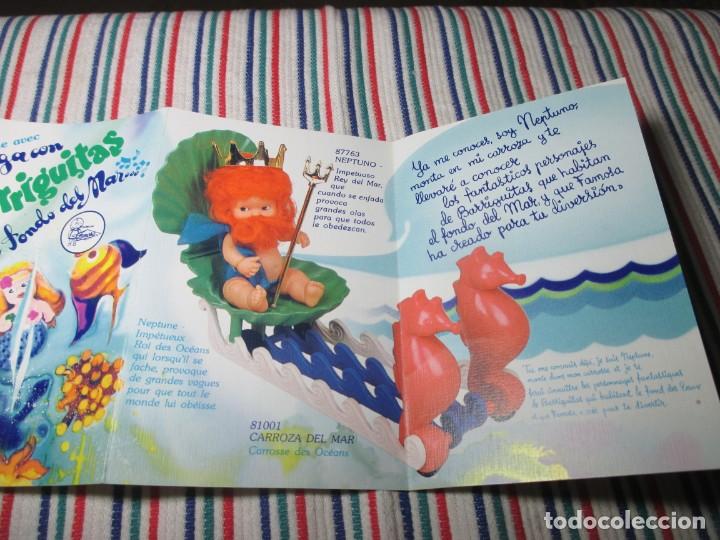 e avec
ga con
rriguitas
fondo del Mar...
87763
NEPTUNO -
Impetuoso
Rey del Mar,
que
cuando se enfada
provoca
grandes olas
para que todos
le obedezcan.
Neptune -
Impétueux
Roi des Océans
qui lorsqu'il se
fache, provoque
de grandes vagues
pour que tout le
monde lui obéisse.
81001
CARROZA DEL MAR
Carrosse des Océans
Ya me conoces, soy Neptuno,
monta en mi carroza y te
llevaré a conocer
los fantasticos personajes
de Barriguitas que habitan
el fondo del Mar, y que Famosa
ha creado para tu diversión.
Tu me connais déjà. Je suis Neptune,
monte dans mon carrosse et je te
ferai connaître les personnages fantastiques
de Barriguitas qui habitent le fond des
et que Famosa a créé pour te divertir.
todocoleccion.net